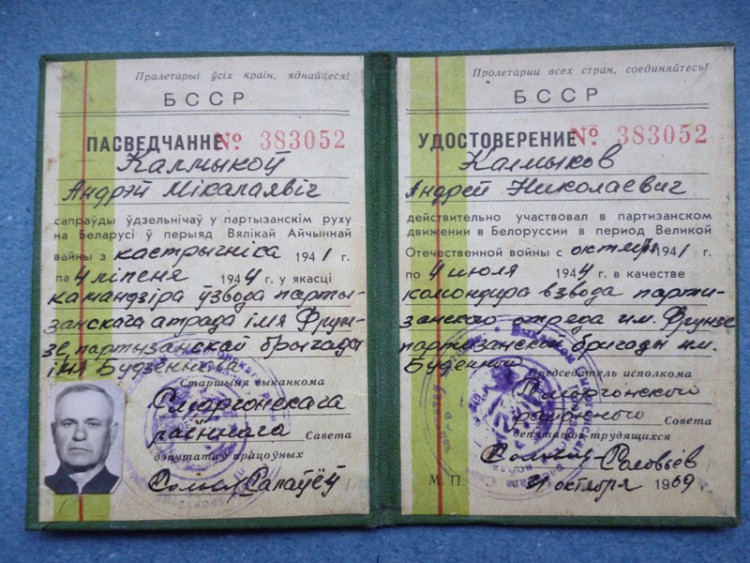 Пралетарыі ўсіх краін, яднайцеся!
БССР
ПАСВЕДЧАННЕ № 383052
Калмыкоў
Андрэй Мікалаявіч
сапраўды ўдзельнічаў у партызанскім руху
на Беларусі ў перыяд Вялікай Айчыннай
вайны з кастрычніка 1941 г.
па 4 ліпеня 1944 г. у якасці
камандзіра ўзвода парты-
занскага атрада імя Фрун-
зе, партызанскай брыгады
імя Будзённага
Старшыня выканкома
Смаргонскага
раённага Савета
дэпутатаў працоўных
Салаўёў
Пролетарии всех стран, соединяйтесь!
БССР
УДОСТОВЕРЕНИЕ № 383052
Калмыков
Андрей Николаевич
действительно участвовал в партизанском
движении в Белоруссии в период Великой
Отечественной войны с октября 1941 г.
по 4 июля 1944 г. в качестве
командира взвода парти-
занского отряда им. Фрунзе
партизанской бригады им.
Буденного
Председатель исполкома
Сморгонского
районного Совета
депутатов трудящихся
Соловьёв
М. П. октября 1969